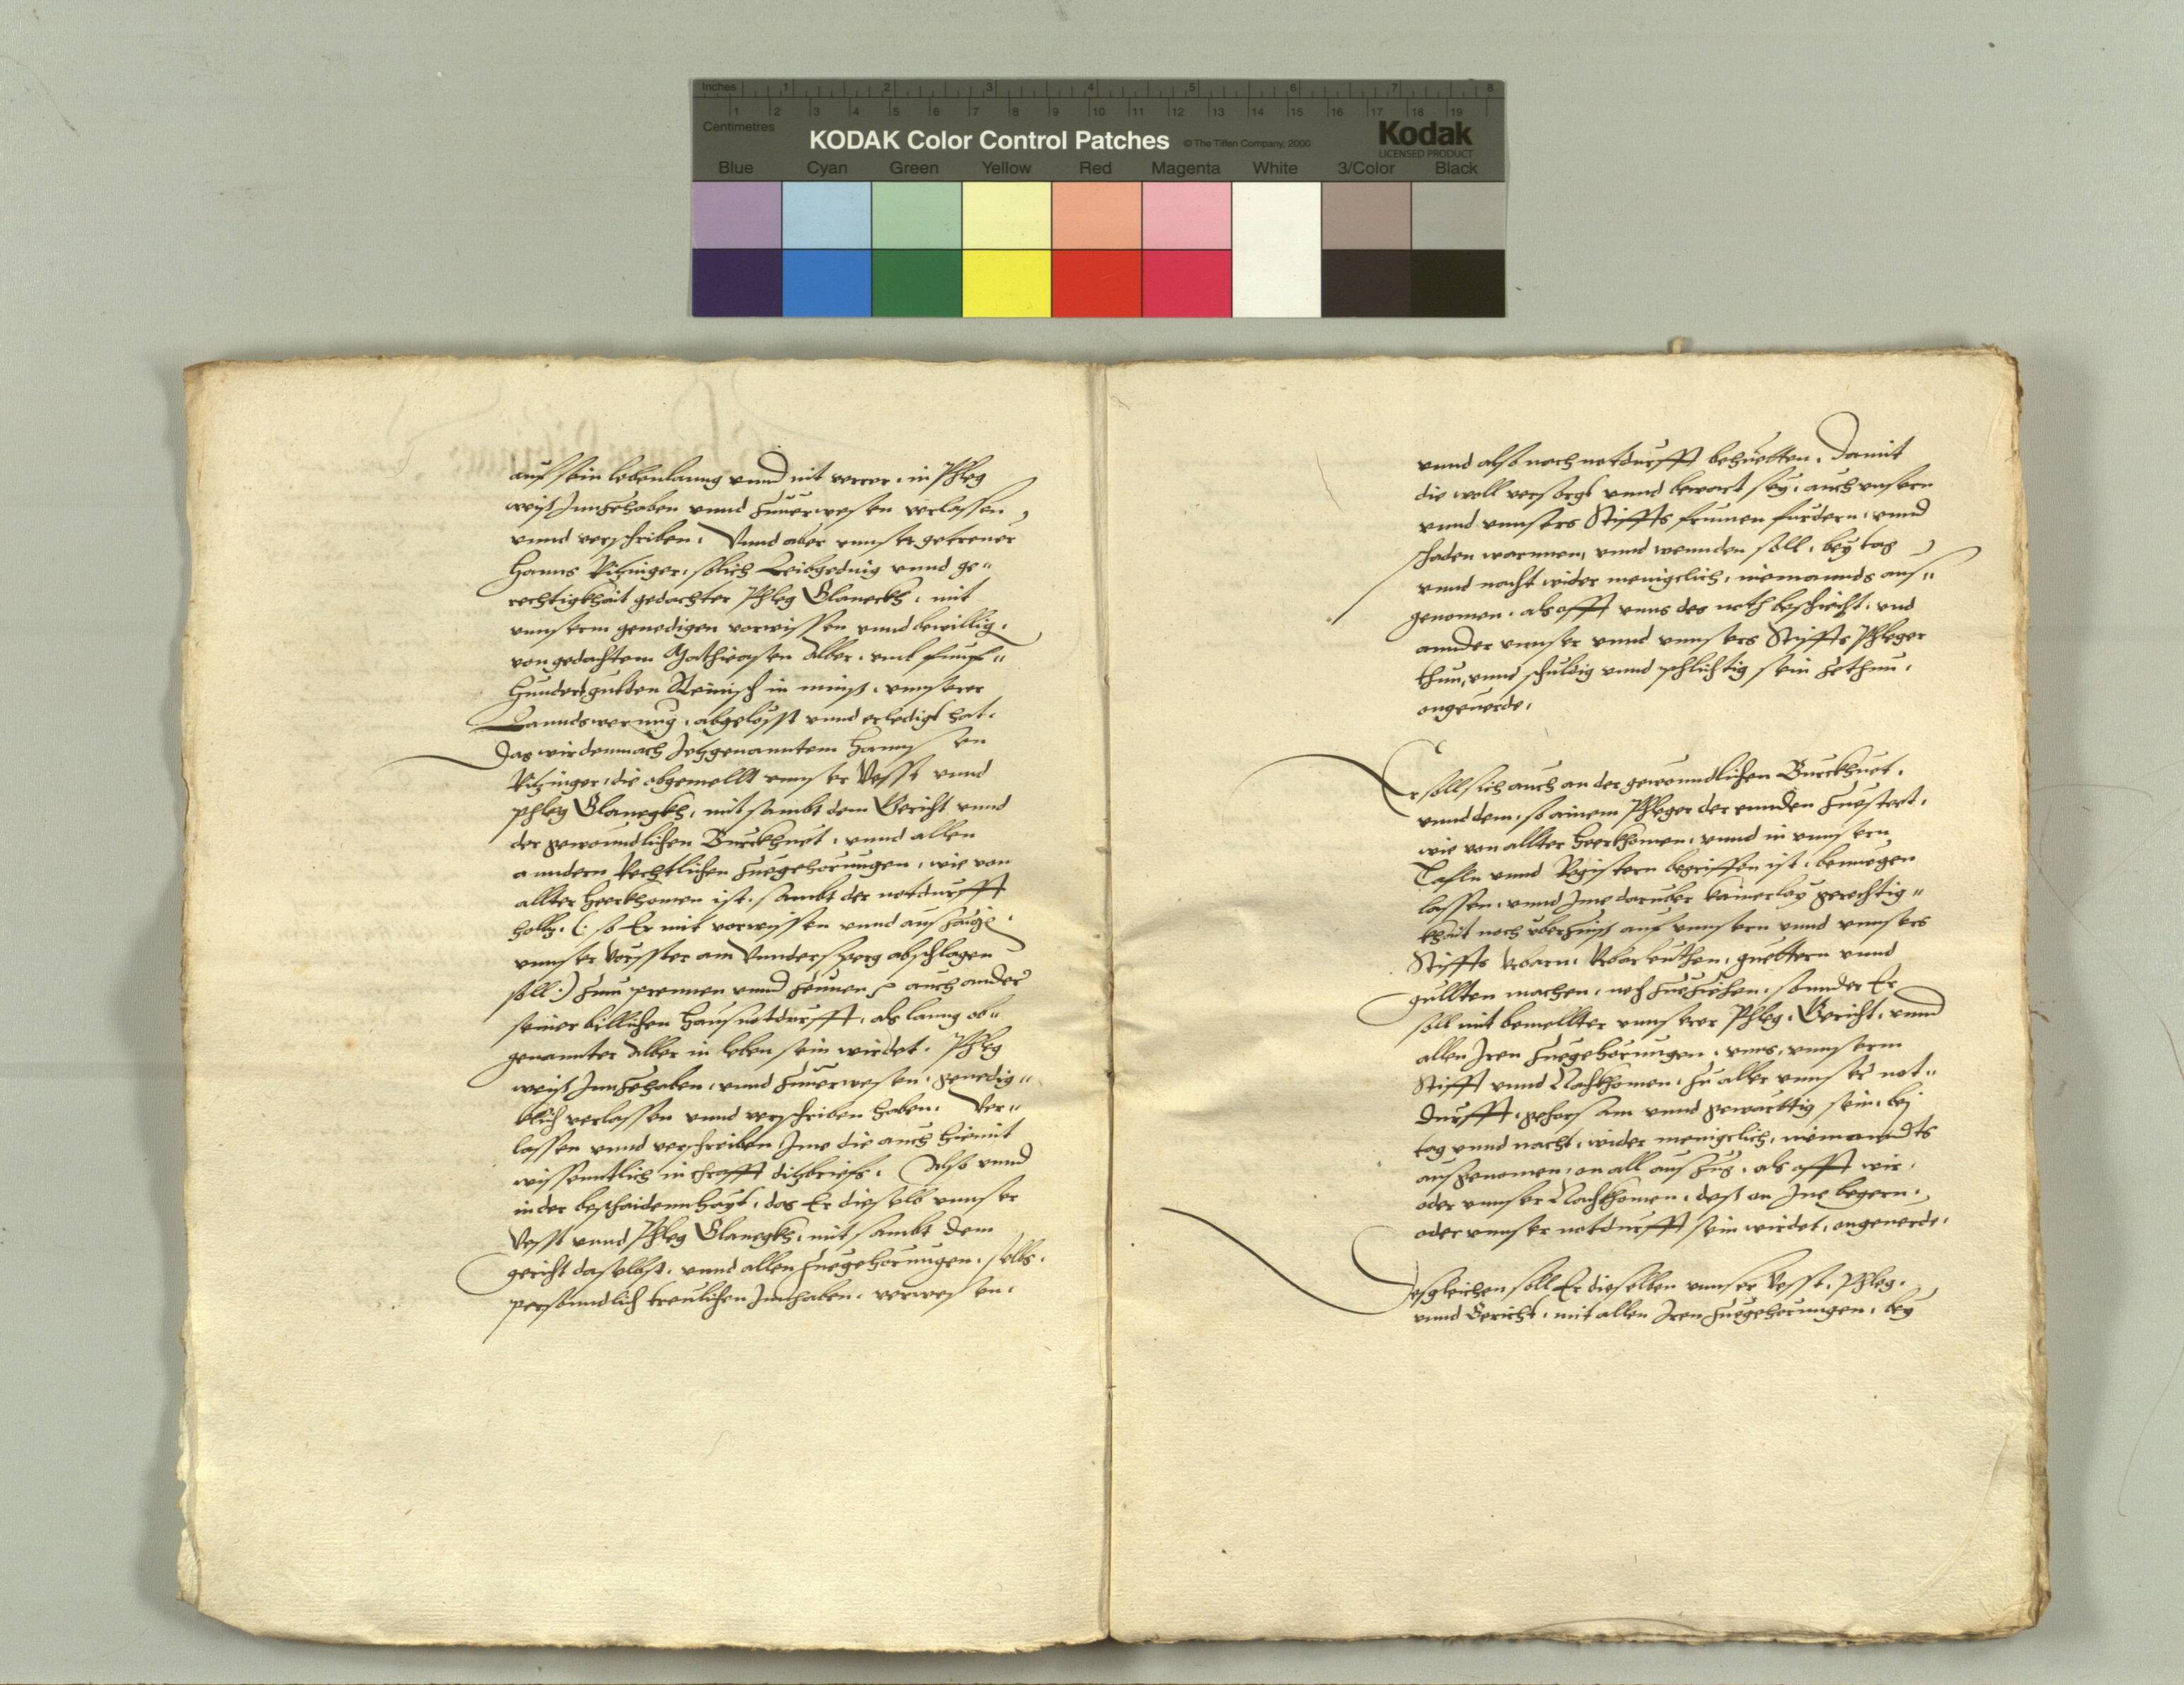 Inches 1 2 3 4 5 6 7 8
1 2 3 4 5 6 7 8 9 10 11 12 13 14 15 16 17 18 19
Centimetres
KODAK Color Control Patches © The Tiffen Company, 2000 Kodak
LICENSED PRODUCT
Blue Cyan Green Yellow Red Magenta White 3/Color Black
auf sein lebenlanng vnnd nit verrer, in Phleg
weiß Innzehaben vnnd Zuuerwesen verlassen
vnnd verschriben. Vnnd aber vnnser getrewer
Hanns Ritzinger, solich Leibgeding vnnd ge"
rechtigkhait gedachter Phleg Glaneckh, mit
vnnserm genedigen vorwissen vnnd bewillig.
von gedachtem Mathiasen Alber, vmb funf"
Hundert gulden Reinisch in minß, vnnserer
Lanndswerung, abgelösst vnnd erledigt hat.
Das wir demnach Jetzgenanntem Hannsen
Ritzinger, die obgemellt vnnser Vesst vnnd
phleg Glanegkh, mit sambt dem Gericht vnnd
der gewonndlichen Burckhuet, vnnd allen
anndern Rechtlichen Zuegehorungen, wie von
allter Heerkhomen ist, sambt der notdurfft
holtz, (: so Er mit vorwissen vnnd auszaig
vnnser Vorsster am Vnndersperg abschlagen
soll :) Zum prennen vnnd Zeunen auch ander
seiner billichen Hausnotdurfft, als lanng ob"
genannter Alber in leben sein wirdet. Phleg
weiß Innzehaben, vnnd Zuuerwesen, genedig"
klich verlassen vnnd verschriben haben. Ver"
lassen vnnd verschreiben Jme die auch hiemit
wissenntlich in chrafft ditzbriefs. Also vnnd
in der beschaidennhayt, das Er dieselb vnnser
Vesst vnnd Phleg Glanegkh, mit sambt dem
gericht daselbst, vnnd allen Zuegehorungen, selbs
personndlich treulichen Innhaben, verwesen,
vnnd also nach notdurfft behuetten, Damit
die woll versorgt vnnd bewart sey, auch vnsern
vnnd vnnsers Stiffts frumen furdern, vnnd
schaden warnnen, vnnd wennden soll, bey tag
vnnd nacht wider menigclich, niemannds aus"
genomen, als offt vnns des noth beschiecht, vnd
annder vnnser vnnd vnnsers Stiffts Phleger
thun, vnnd schuldig vnnd phlichtig sein Zethun,
ongeuerde,
Er soll sich auch an der gewonndlichen Burckhuet,
vnnd dem, so ainem Phleger der ennden Zuesteet,
wie von allter Heerkhomen, vnnd in vnnsern
Tafln vnnd Registern begriffen ist, benuegen
lassen, vnnd Jme daruber kainerley gerechtig"
khait noch vberzinß auf vnnsern vnnd vnnsers
Stiffts Vrbarn, Vrbarleuthen, guettern vnnd
gullten machen, noch Zueziehen, sonnder Er
soll mit bemellter vnnserer Phleg, Gericht, vnnd
allen Jren Zuegehorungen, vnns, vnnserm
Stifft vnnd Nachkhomen, Zu aller vnnser not"
durfft, gehorsam vnnd gewarttig sein, bej
tag vnnd nacht, wider menigclich, niemanndts
ausgenomen, on all auszug, als offt wir,
oder vnnser Nachkhomen, deß an Jne begern,
oder vnnser notdurfft sein wirdet, ongeuerde.
Desgleichen soll Er dieselben vnnser Vesst, Phleg,
vnnd Gericht, mit allen Jren Zuegehorungen, bey